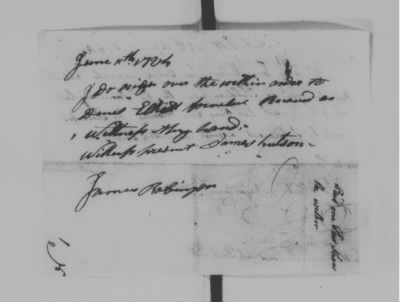 June 11th 1784
I Do asign over the within order to
Daniel Elliott for value Receved as
Wittness My hand
Wittness present James hutson
James Robinson
the within